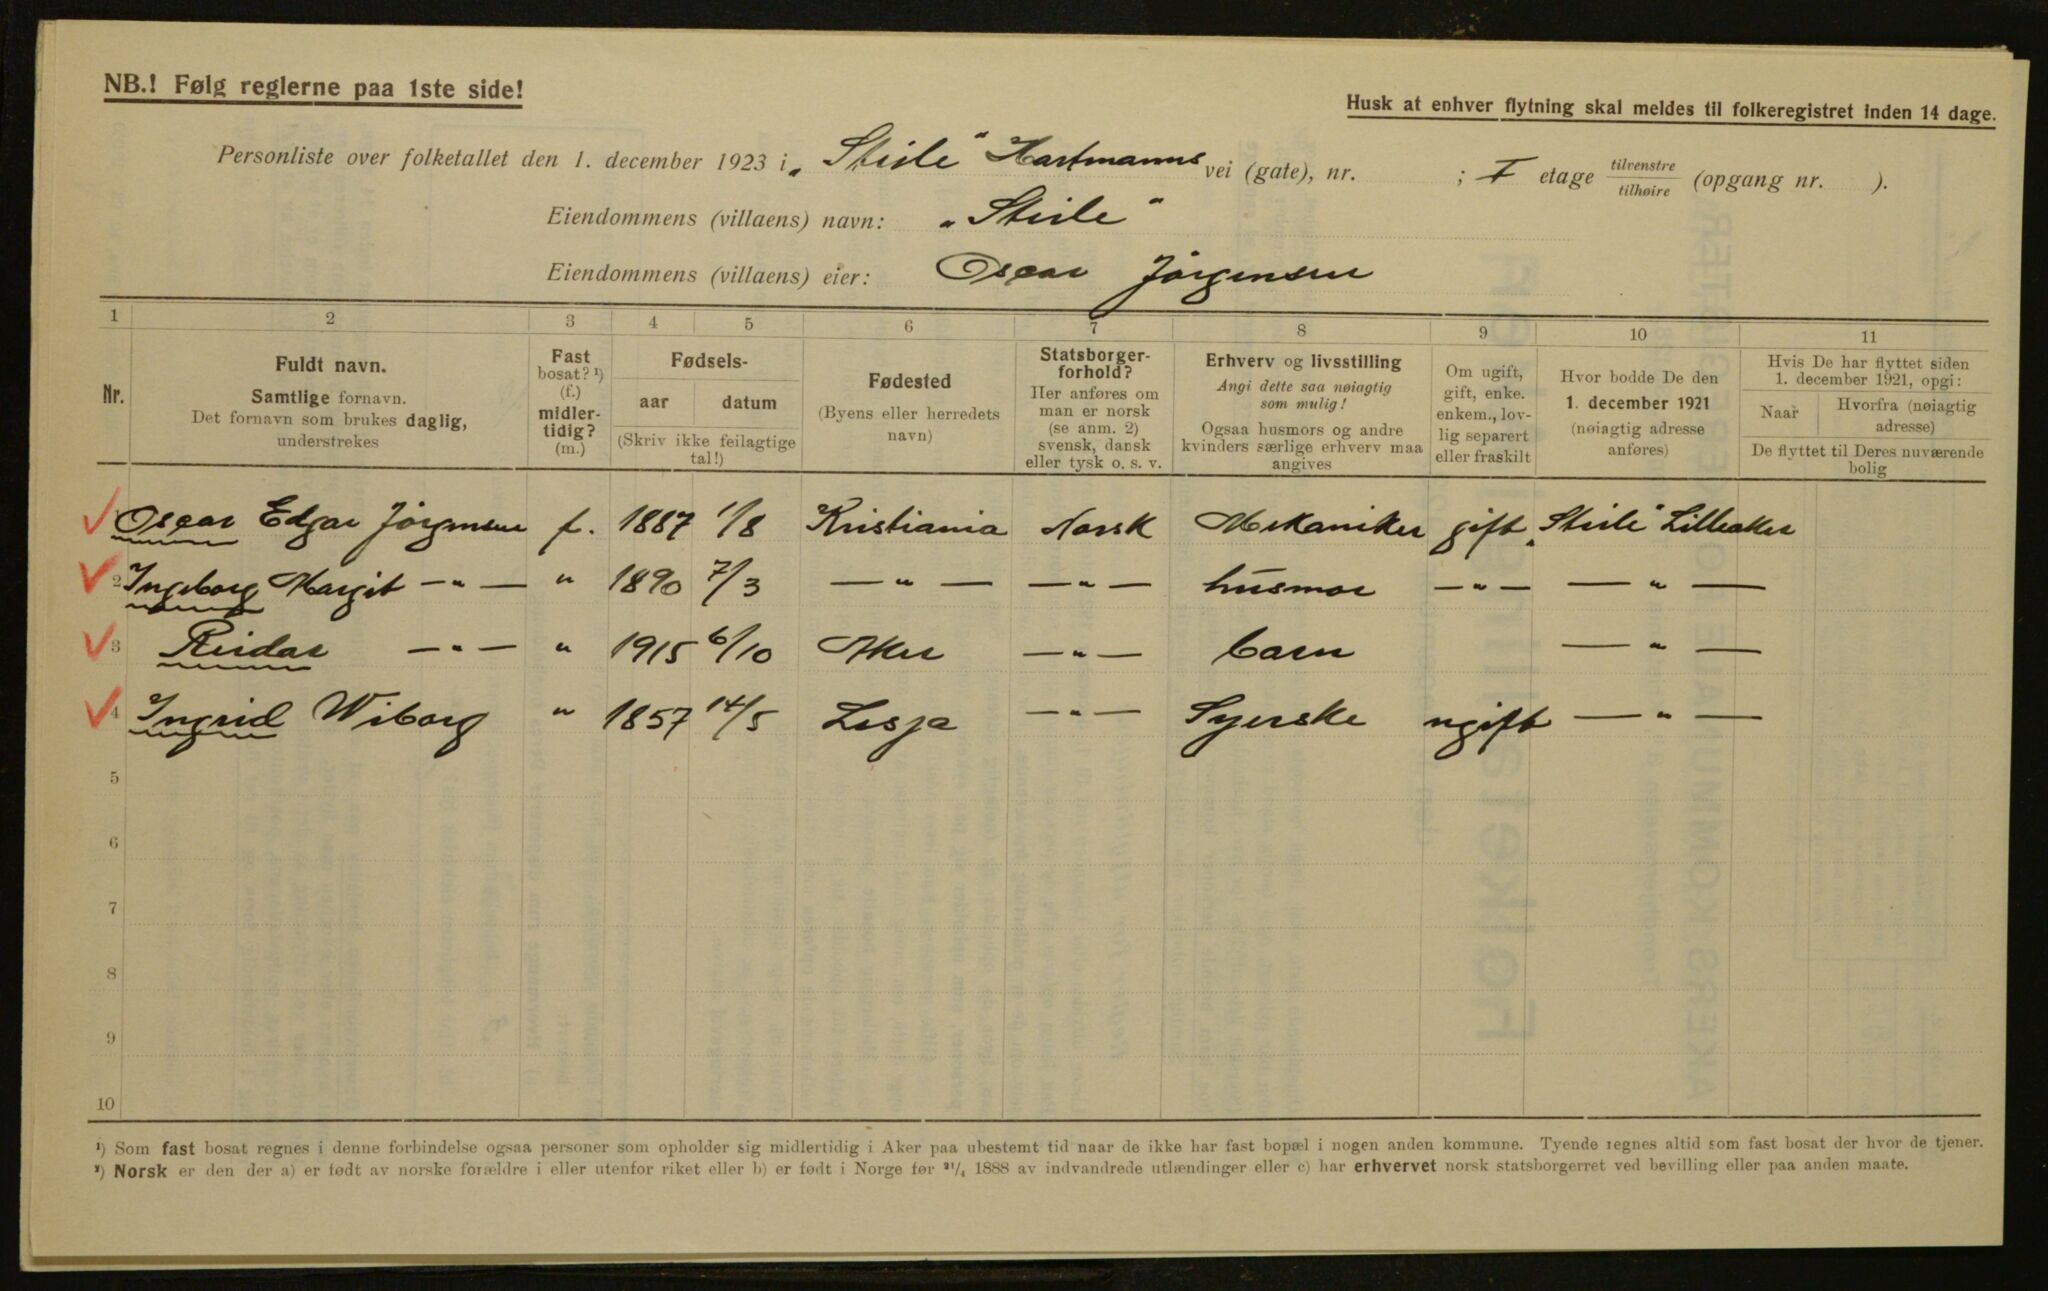 NB.! Følg reglerne paa 1ste side!
Husk at enhver flytning skal meldes til folkeregistret inden 14 dage.
Personliste over folketallet den 1. december 1923 i „Steile“ Hartmanns vei (gate), nr. ; I etage tilvenstre tilhøire (opgang nr. ).
Eiendommens (villaens) navn: „Steile“
Eiendommens (villaens) eier: Oscar Jörgensen
1 2 3 4 5 6 7 8 9 10 11
Nr.
Fuldt navn.
Samtlige fornavn.
Det fornavn som brukes daglig,
understrekes
Fast
bosat? ¹)
(f.)
midler-
tidig?
(m.)
Fødsels-
aar datum
(Skriv ikke feilagtige
tal!)
Fødested
(Byens eller herredets
navn)
Statsborger-
forhold?
Her anføres om
man er norsk
(se anm. 2)
svensk, dansk
eller tysk o. s. v.
Erhverv og livsstilling
Angi dette saa nøiagtig
som mulig!
Ogsaa husmors og andre
kvinders særlige erhverv maa
angives
Om ugift,
gift, enke.
enkem., lov-
lig separert
eller fraskilt
Hvor bodde De den
1. december 1921
(nøiagtig adresse
anføres)
Hvis De har flyttet siden
1. december 1921, opgi:
Naar
Hvorfra (nøiagtig
adresse)
De flyttet til Deres nuværende
bolig
Oscar Edgar Jörgensen f. 1887 1/8 Kristiania Norsk Mekaniker gift „Steile“ Lilleaker
2 Ingeborg Margit —„— „ 1890 7/3 —„— —„— husmor —„— —„—
3 Reidar —„— „ 1915 6/10 Aker —„— barn —„—
4 Ingrid Wiborg „ 1857 14/5 Lesja —„— Syerske ugift —„—
5
6
7
8
9
10
¹) Som fast bosat regnes i denne forbindelse ogsaa personer som opholder sig midlertidig i Aker paa ubestemt tid naar de ikke har fast bopæl i nogen anden kommune. Tyende regnes altid som fast bosat der hvor de tjener.
²) Norsk er den der a) er født av norske forældre i eller utenfor riket eller b) er født i Norge før ²¹/₄ 1888 av indvandrede utlændinger eller c) har erhvervet norsk statsborgerret ved bevilling eller paa anden maate.